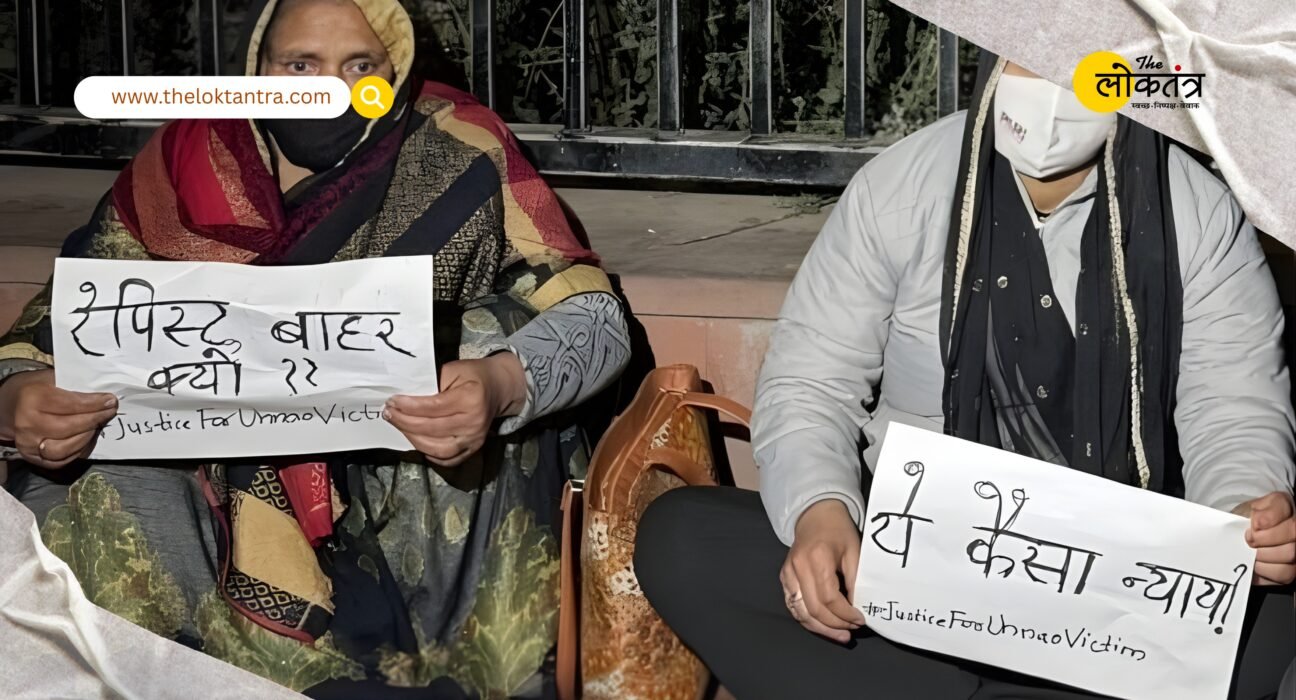 www.theloktantra.com
The
लोकतंत्र
स्वच्छ-निष्पक्ष-बेबाक
रेपिस्ट बाहर
क्यों ??
#JusticeForUnnaoVicti
ये कैसा न्याय?
#JusticeForUnnaoVictim